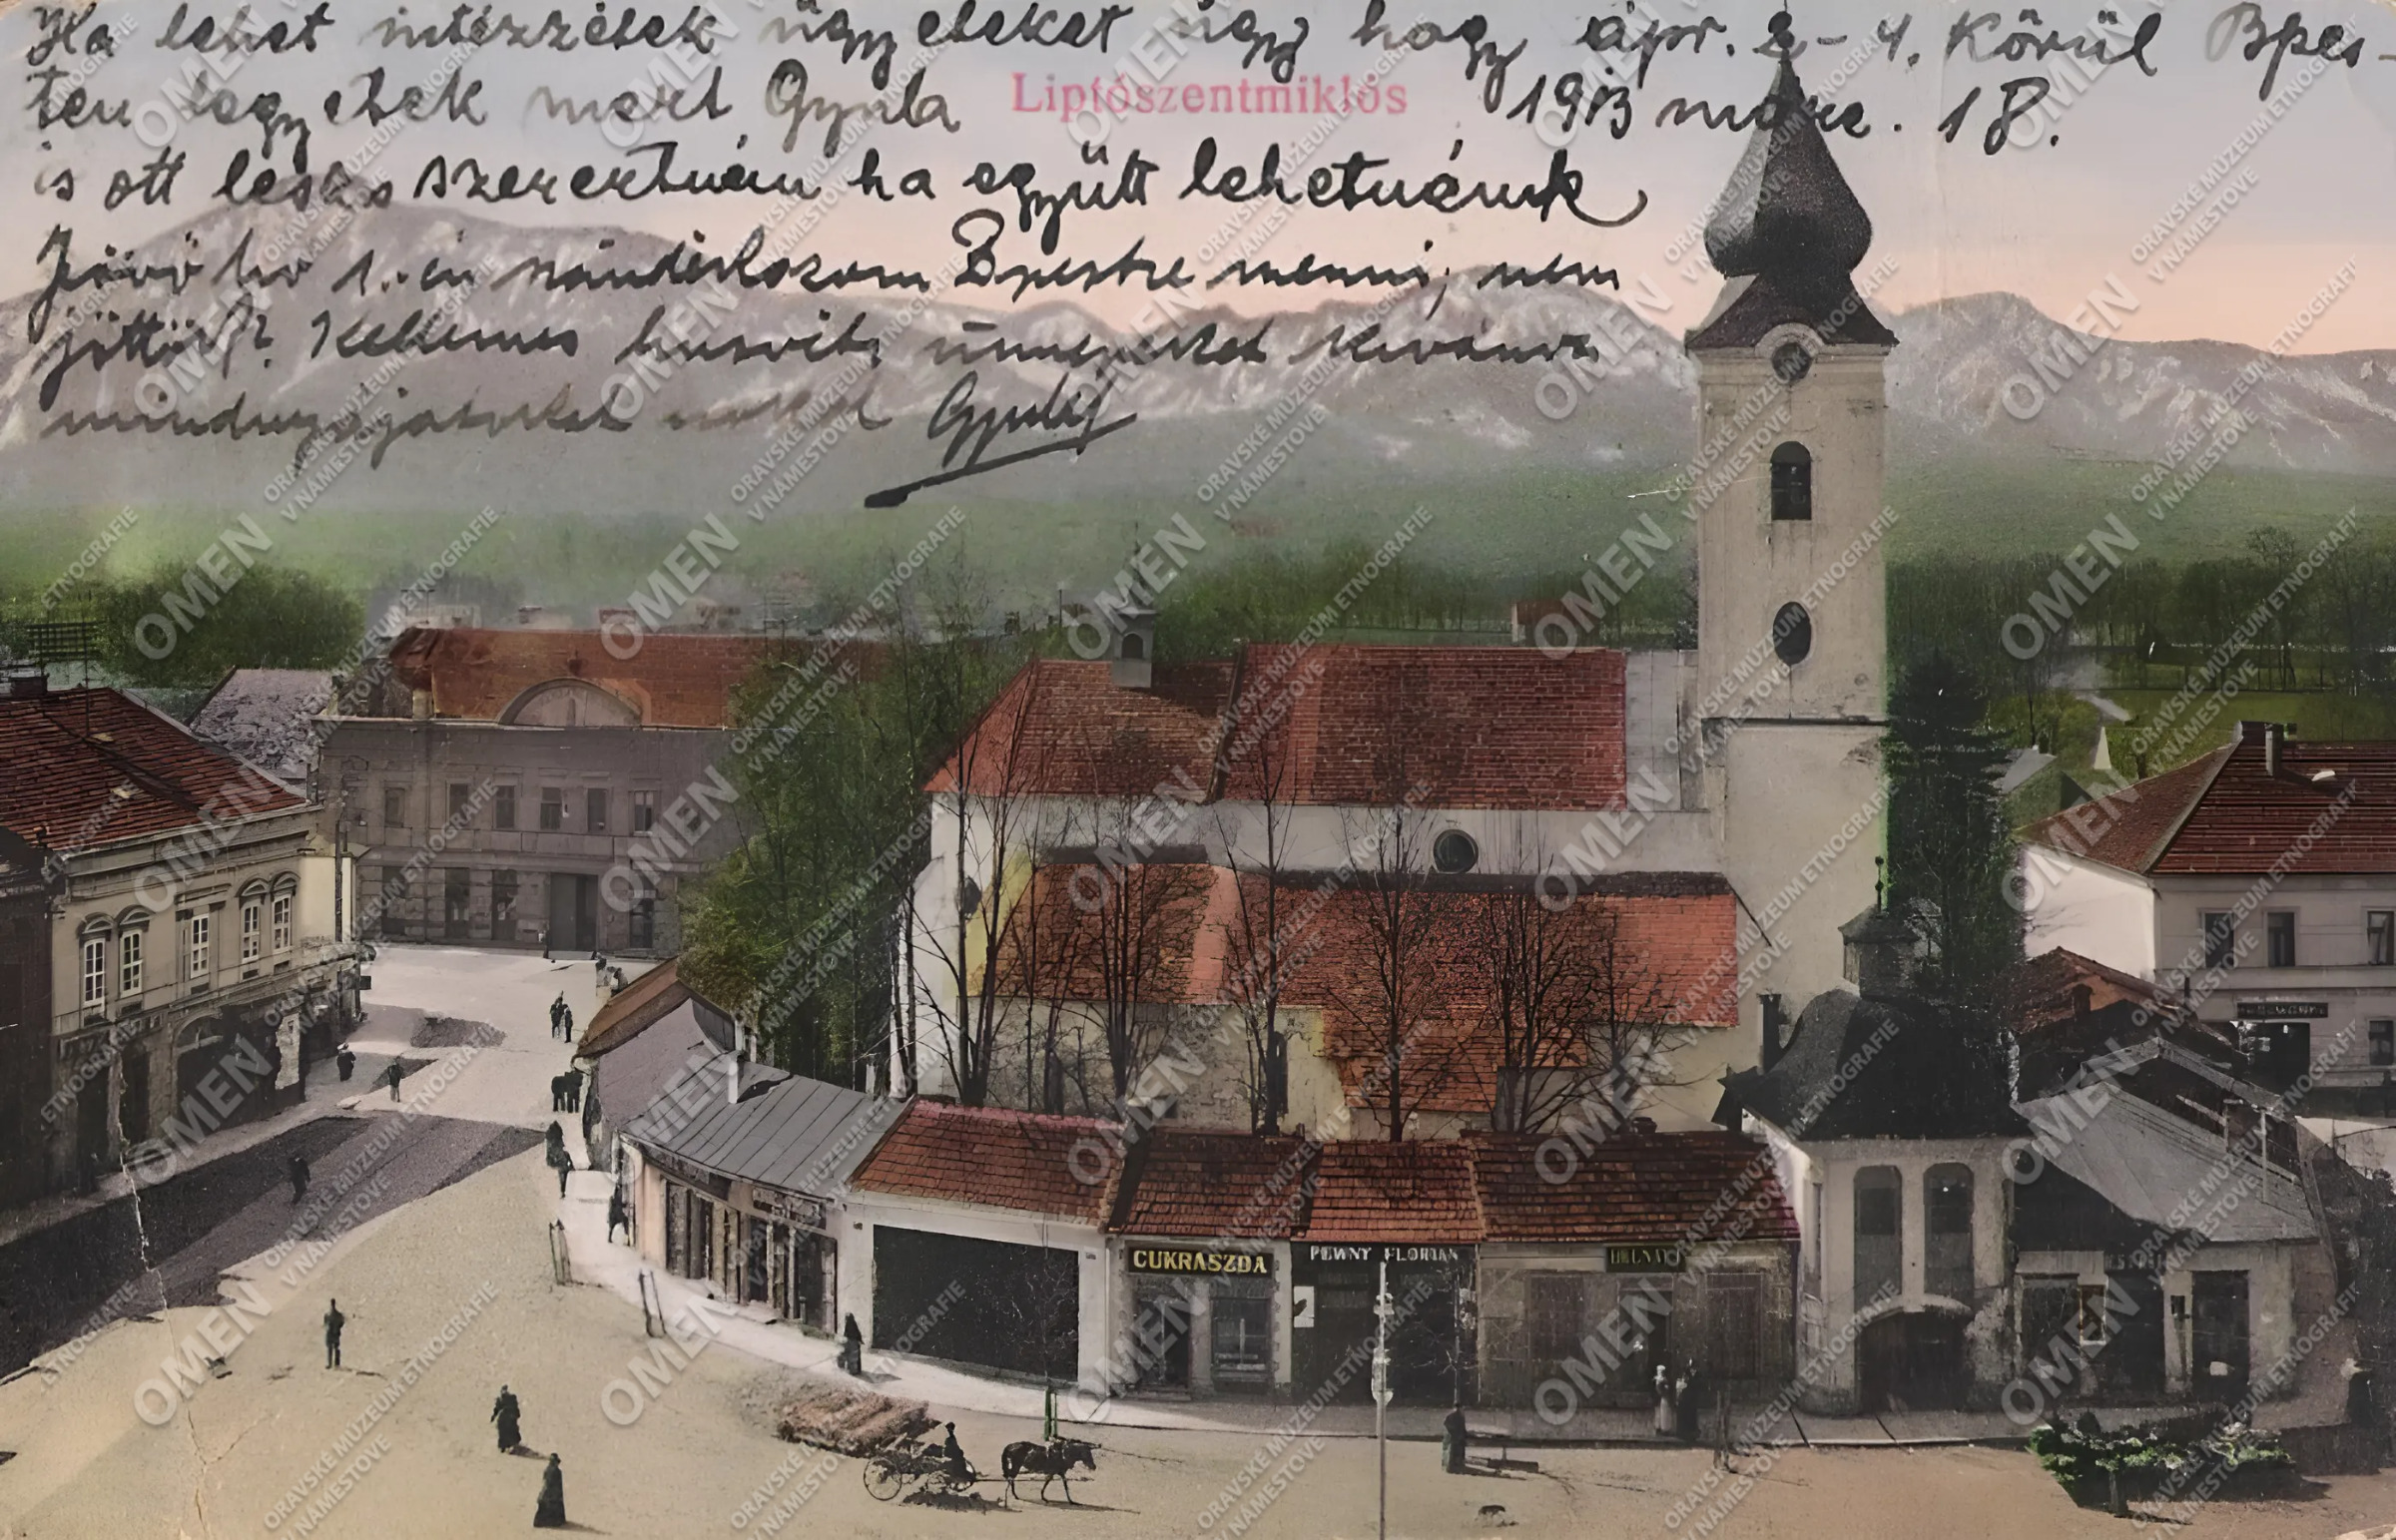 Ha lehet intézzétek ügyeteket úgy hogy ápr. 2-4. Körül Bpes-
ten legyetek mert Gyula
Liptószentmiklós
1913 márc. 18.
is ott lesz s szeretném ha együtt lehetnénk
Jövő hó 1.-én szándékozom Bpestre menni, nem
jöttök? Kellemes husvéti ünnepeket kívánva
mindnyájatoknak
CUKRASZDA
PEWNY FLORIAN
OMEN
ORAVSKÉ MÚZEUM ETNOGRAFIE
V NÁMESTOVE